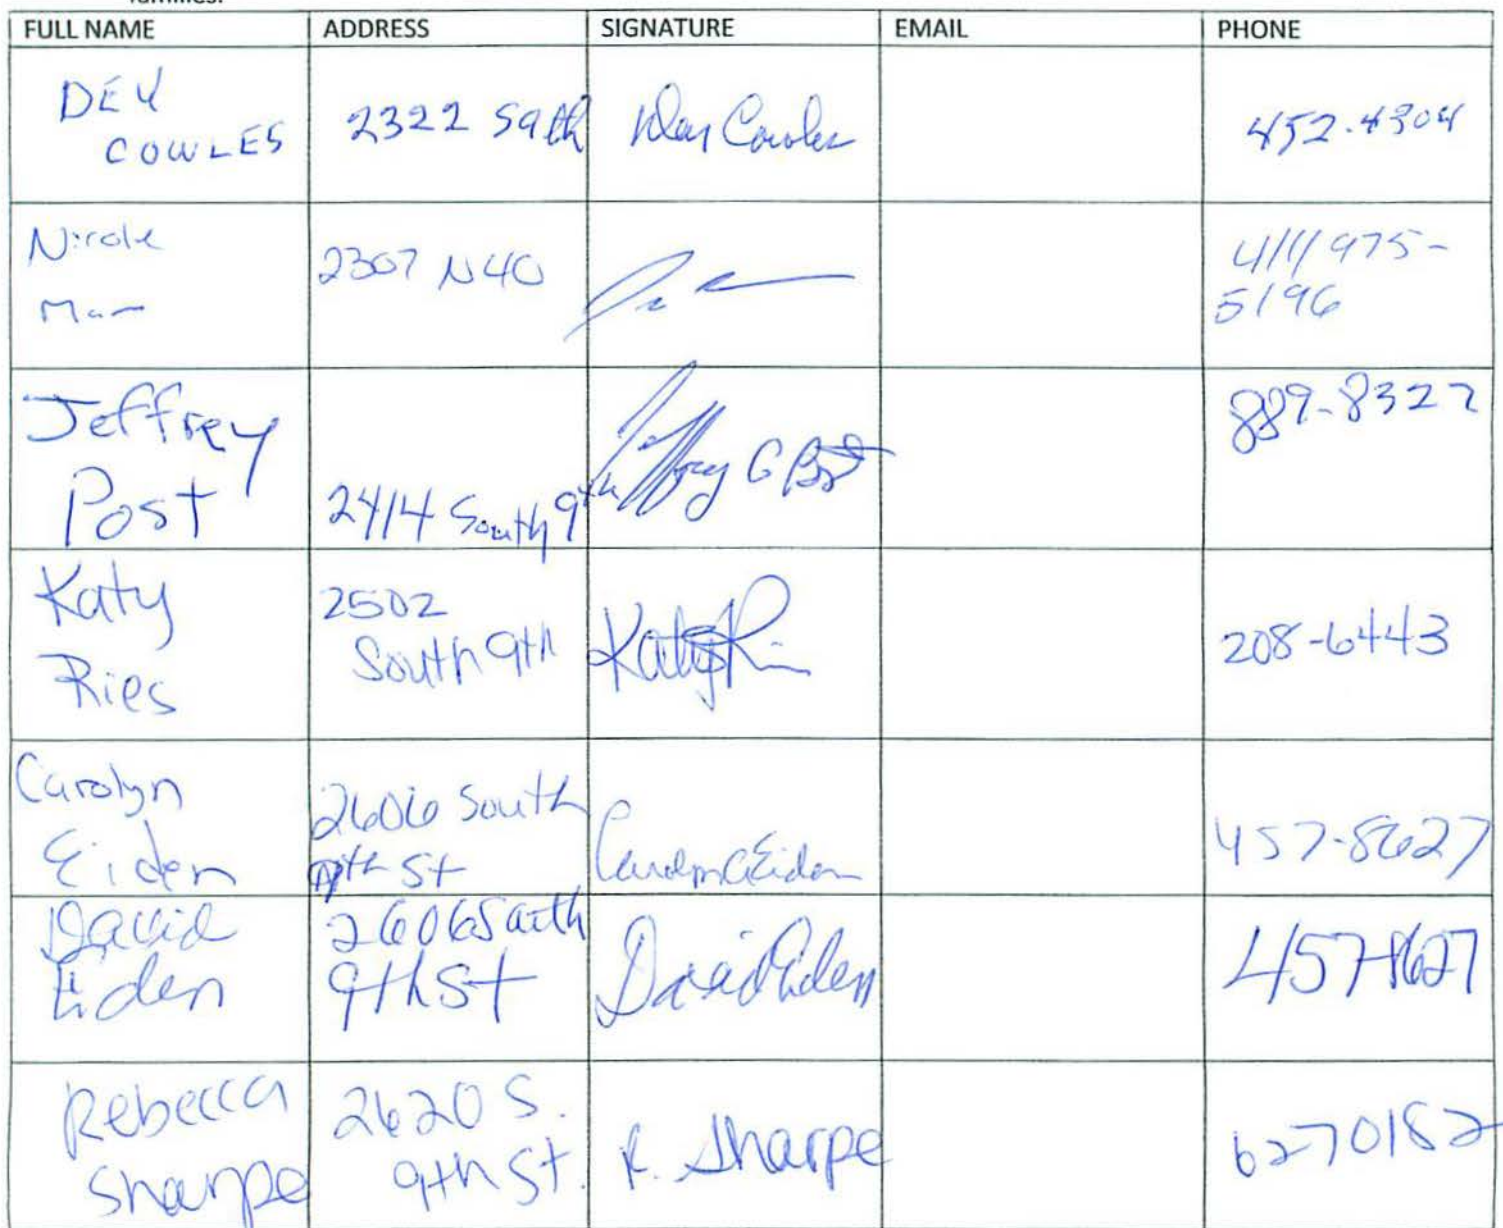 families.
FULL NAME ADDRESS SIGNATURE EMAIL PHONE
DEY
COWLES
2322 S 9th
Dey Cowles
452-4304
Nicole
2307 N 40
414 975-
5196
Jeffrey
Post
2414 South 9th
Jeffrey G Post
889-8322
Katy
Ries
2502
South 9th
Katy Ri
208-6443
Carolyn
Eiden
2606 South
9th St
Carolyn C Eiden
457-8627
David
Eiden
2606 South
9th St
David Eiden
457-8627
Rebecca
Sharpe
2620 S.
9th St.
R. Sharpe
6270182